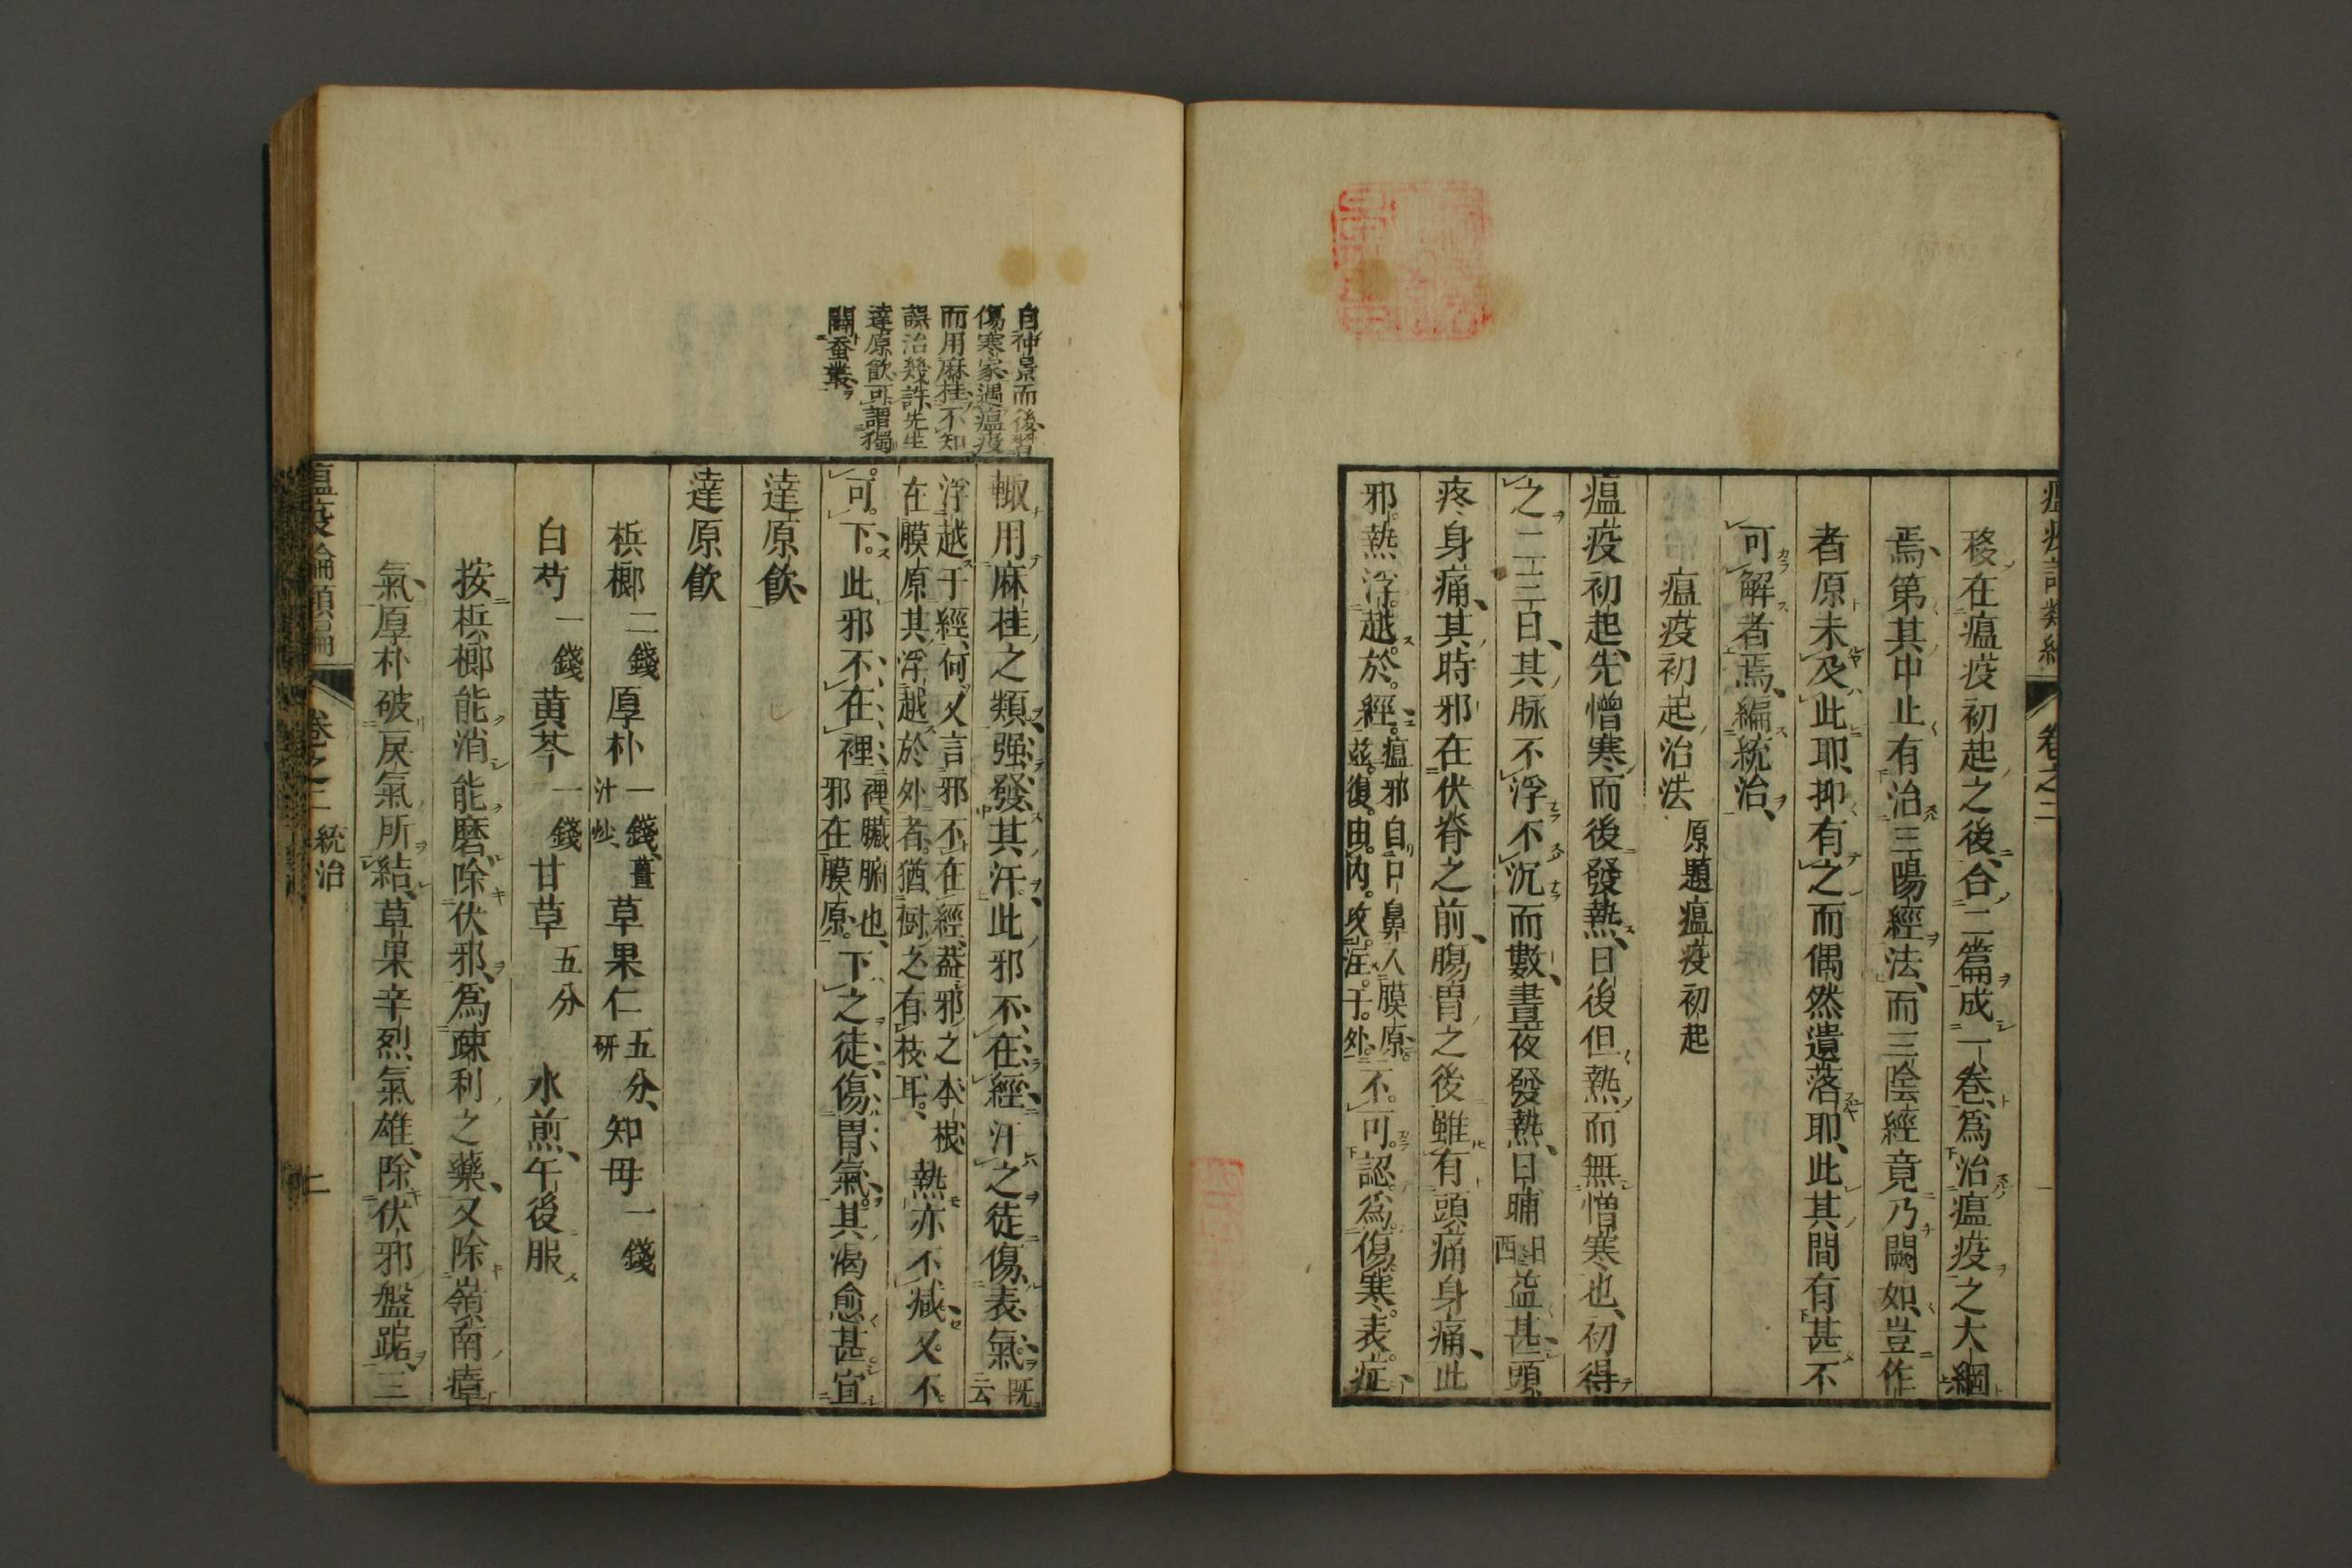 卷之二
移在瘟疫初起之後、合二篇成一卷、爲治瘟疫之大綱
焉、第其中止有治三陽經法、而三陰經竟乃闕如、豈作
者原未及此耶、抑有之而偶然遺落耶、此其間有甚不
可解者焉、編統治、
瘟疫初起治法 原題瘟疫初起
瘟疫初起、先憎寒而後發熱、日後但熱而無憎寒也、初得
之二三日、其脉不浮不沉而數、晝夜發熱、日晡益甚、頭
疼身痛、其時邪在伏脊之前、腸胃之後、雖有頭痛身痛、此
邪熱浮越於經。瘟邪自口鼻入膜原。玆復由內攻注于外。不可認爲傷寒表症、
自仲景而後習
傷寒家、遇瘟疫
而用麻桂、不知
誤治幾許、先生
達原飲、可謂獨
闢蚕叢、
輙用麻桂之類、强發其汗、此邪不在經、汗之徒傷表氣、既云
浮越于經、何又言邪不在經、蓋邪之本根
在膜原、其浮越於外者、猶樹之有枝耳。熱亦不減、又不
可下。此邪不在裡、裡臟腑也、邪在膜原。下之徒傷胃氣。其渴愈甚、宜
達原飲、
達原飲
梹榔二錢 厚朴一錢、薑汁炒、 草果仁五分、研 知母一錢
白芍一錢 黄芩一錢 甘草五分 水煎、午後服
按梹榔能消能磨、除伏邪、爲疎利之藥、又除嶺南瘴
氣、厚朴破戻氣所結、草果辛烈氣雄、除伏邪盤踞、三
卷之二 統治 二